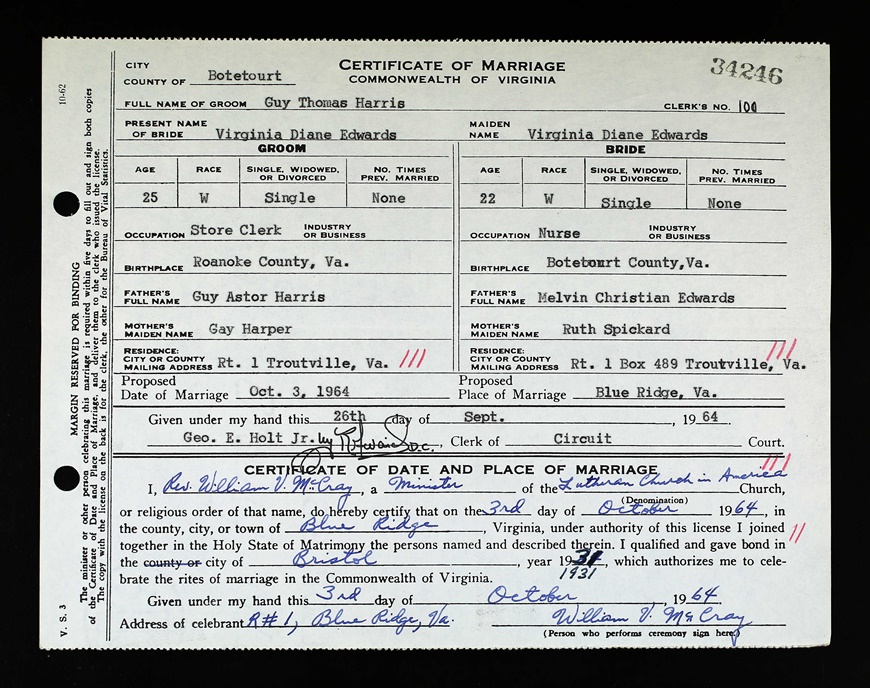 CITY
COUNTY OF Botetourt
CERTIFICATE OF MARRIAGE
COMMONWEALTH OF VIRGINIA
34246
FULL NAME OF GROOM Guy Thomas Harris CLERK'S NO. 100
PRESENT NAME OF BRIDE Virginia Diane Edwards MAIDEN NAME Virginia Diane Edwards
GROOM BRIDE
AGE RACE SINGLE, WIDOWED, OR DIVORCED NO. TIMES PREV. MARRIED AGE RACE SINGLE, WIDOWED, OR DIVORCED NO. TIMES PREV. MARRIED
25 W Single None 22 W Single None
OCCUPATION Store Clerk INDUSTRY OR BUSINESS OCCUPATION Nurse INDUSTRY OR BUSINESS
BIRTHPLACE Roanoke County, Va. BIRTHPLACE Botetourt County,Va.
FATHER'S FULL NAME Guy Astor Harris FATHER'S FULL NAME Melvin Christian Edwards
MOTHER'S MAIDEN NAME Gay Harper MOTHER'S MAIDEN NAME Ruth Spickard
RESIDENCE: CITY OR COUNTY MAILING ADDRESS Rt. 1 Troutville, Va. /// RESIDENCE: CITY OR COUNTY MAILING ADDRESS Rt. 1 Box 489 Troutville, Va. ///
Proposed Date of Marriage Oct. 3, 1964 Proposed Place of Marriage Blue Ridge, Va.
Given under my hand this 26th day of Sept. , 19 64 .
Geo. E. Holt Jr. by D.C. , Clerk of Circuit Court.
CERTIFICATE OF DATE AND PLACE OF MARRIAGE ///
I, Rev. William V. McCray, a Minister of the Lutheran Church in America Church,
(Denomination)
or religious order of that name, do hereby certify that on the 3rd day of October 1964, in
the county, city, or town of Blue Ridge, Virginia, under authority of this license I joined
together in the Holy State of Matrimony the persons named and described therein. I qualified and gave bond in //
the county or city of Bristol, year 1931, which authorizes me to cele-
1931
brate the rites of marriage in the Commonwealth of Virginia.
Given under my hand this 3rd day of October, 1964
Address of celebrant R#1, Blue Ridge, Va. William V. McCray
(Person who performs ceremony sign here.)
10-62
MARGIN RESERVED FOR BINDING
The minister or other person celebrating this marriage is required within five days to fill out and sign both copies
of the Certificate of Date and Place of Marriage, and deliver them to the clerk who issued the license.
The copy with the license on the back is for the clerk, the other for the Bureau of Vital Statistics.
V. S. 3